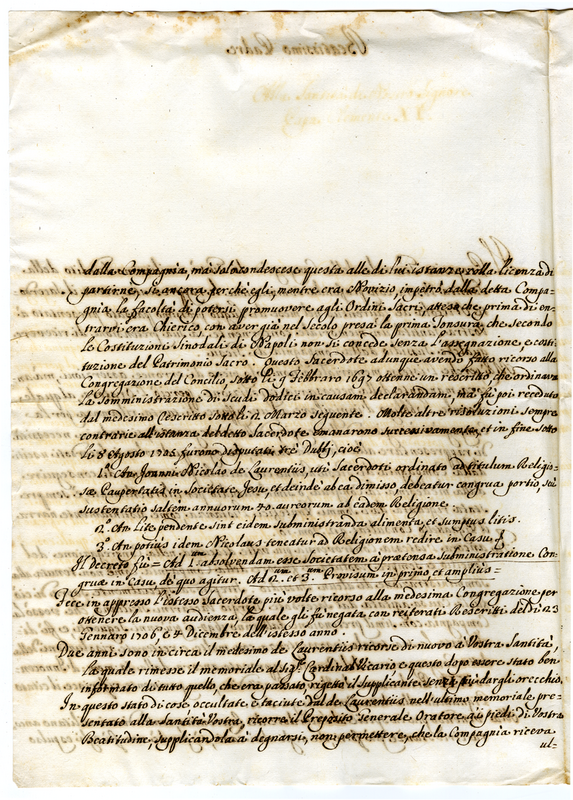 dalla Compagnia, ma solo condescese questa alle di lui istanze colla licenza di
partirne, si ancora perche egli, mentre era Novizio impetrò dalla detta Compa-
gnia la facoltà di potersi promuovere agli Ordini Sacri, atteso che prima di en-
trarvi era Chierico, con aver già nel Secolo presa la prima Tonsura, che secondo
le Costituzioni Sinodali di Napoli non si concede senza l'assegnazione, e costi-
tuzione del Patrimonio Sacro. Questo Sacerdote adunque avendo fatto ricorso alla
Congregazione del Concilio, sotto li 9 Febbraro 1697 ottenne un rescritto, che ordinava
la somministrazione di Scudi dodici in causam declarandam, ma fù poi receduto
dal medesimo Rescritto sotto li 2 Marzo seguente. Molte altre risoluzioni sempre
contrarie all'istanza del detto Sacerdote emanarono successivamente, et in fine sotto
li 8 Agosto 1705 furono disputati tre Dubbj, cioè
1.º An Joanni Nicolao de Laurentiis, uti Sacerdoti ordinato ad titulum Religio-
sæ Paupertatis in Societate Jesu, et deinde ab ea dimisso debeatur congrua portio, seu
sustentatio saltem annuorum 40. aureorum ab eadem Religione.
2.º An lite pendente sint eidem subministranda alimenta, et sumptus litis.
3.º An potius idem Nicolaus teneatur ad Religionem redire in Casu &
Il Decreto fù = Ad 1.um absolvendam esse Societatem à prætensa subministratione Con-
gruæ in Casu, de quo agitur. Ad 2.um et 3.um Provisum in primo, et amplius =
Fece in appresso l'istesso Sacerdote più volte ricorso alla medesima Congregazione per
ottenere la nuova audienza, la quale gli fù negata con reiterati Rescritti delli 23
Gennaro 1706, e 4 Dicembre dell'istesso anno.
Due anni sono in circa il medesimo de Laurentiis ricorse di nuovo à Vostra Santità,
la quale rimesse il memoriale al Sig.r Cardinal Vicario e questo dopo essere stato ben
informato di tutto quello, che era passato, rigettò il supplicante senza più dargli orecchio.
In questo stato di cose occultate, e taciute dal de Laurentiis nell'ultimo memoriale, pre-
sentato alla Santità Vostra, ricorre il Preposito Generale Oratore a' piedi di Vostra
Beatitudine, supplicandola à degnarsi, non permettere, che la Compagnia riceva
ul-